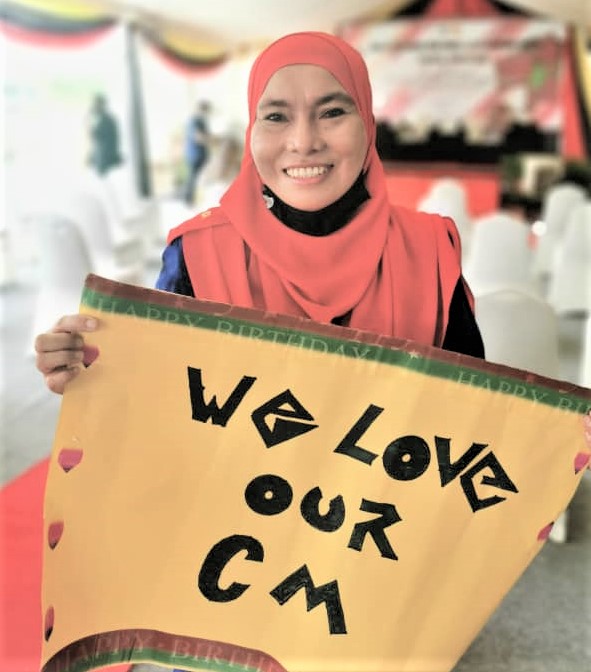 HAPPY BIRTHDAY
HAPPY BIR
We LOVe
OUR
CM
HAPPY BIRTHDAY